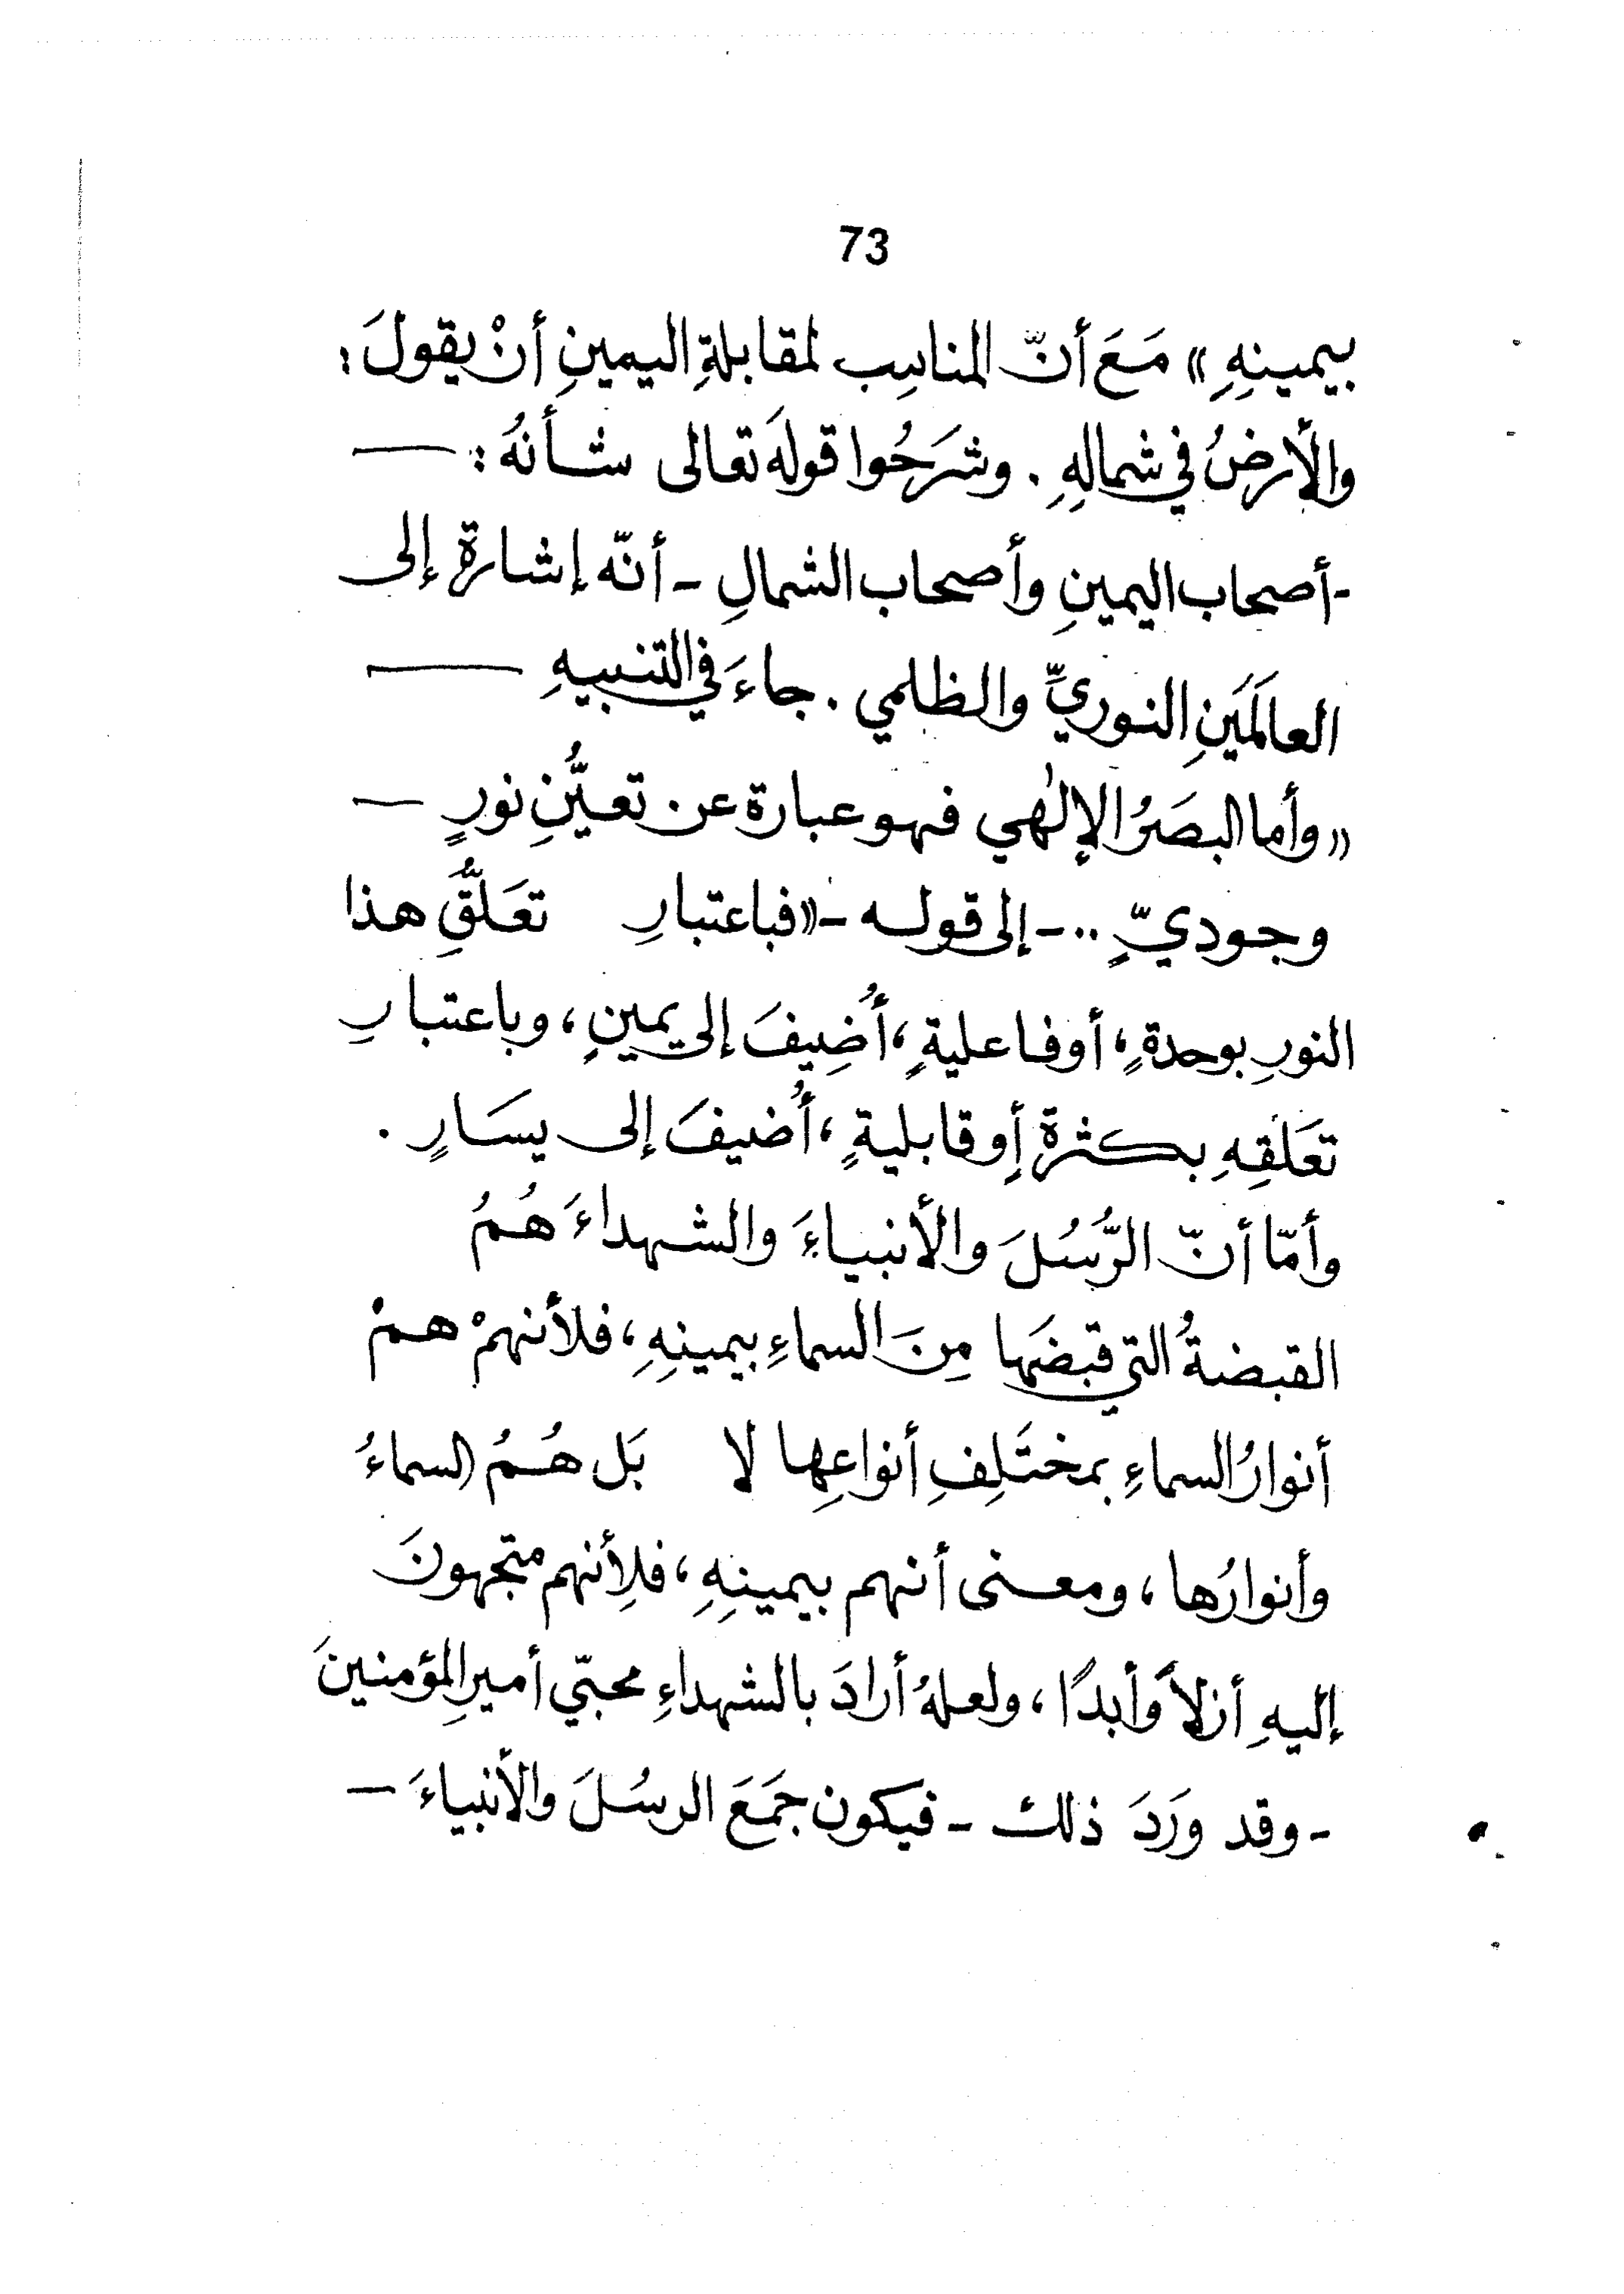 73
بيمينهِ» مَعَ أنّ المناسِب لمقابلةِ اليمينِ أنْ يقولَ:
والأرضُ في شمالهِ. وشرَحُوا قولهَ تعالى شأنهُ:
-أصحاب اليمينِ وأصحاب الشمالِ- أنّه إشارة إلى
العالَمَينِ النوريِّ والظلمي. جاءَ في التنبيهِ
«وأما البصَرُ الإلٰهي فهو عبارة عن تعيُّنِ نورٍ
وجوديّ..-إلى قوله-«فباعتبارِ تعَلُّقِ هذا
النورِ بوحدةٍ، أوفاعليةٍ، أُضِيفَ إلى يمينٍ، وباعتبارِ
تعَلقِهِ بكثرة أو قابليةٍ، أُضيفَ إلى يسَارٍ.
وأمّا أنّ الرُّسُلَ والأنبياءَ والشهداءَ هُمُ
القبضةُ التي قبضَها مِنَ السماءِ بيمينِهِ، فلأنهمْ همْ
أنوارُ السماءِ بمختَلِفِ أنواعِها لا بَل هُمُ السماءُ
وأنوارُها، ومعنى أنهم بيمينِهِ، فلِأنهم متجهونَ
إليهِ أزلاً وأبدًا، ولعلهُ أرادَ بالشهداءِ محبّي أميرِ المؤمنينَ
- وقد ورَدَ ذلك - فيكون جمَعَ الرسُلَ والأنبياءَ -